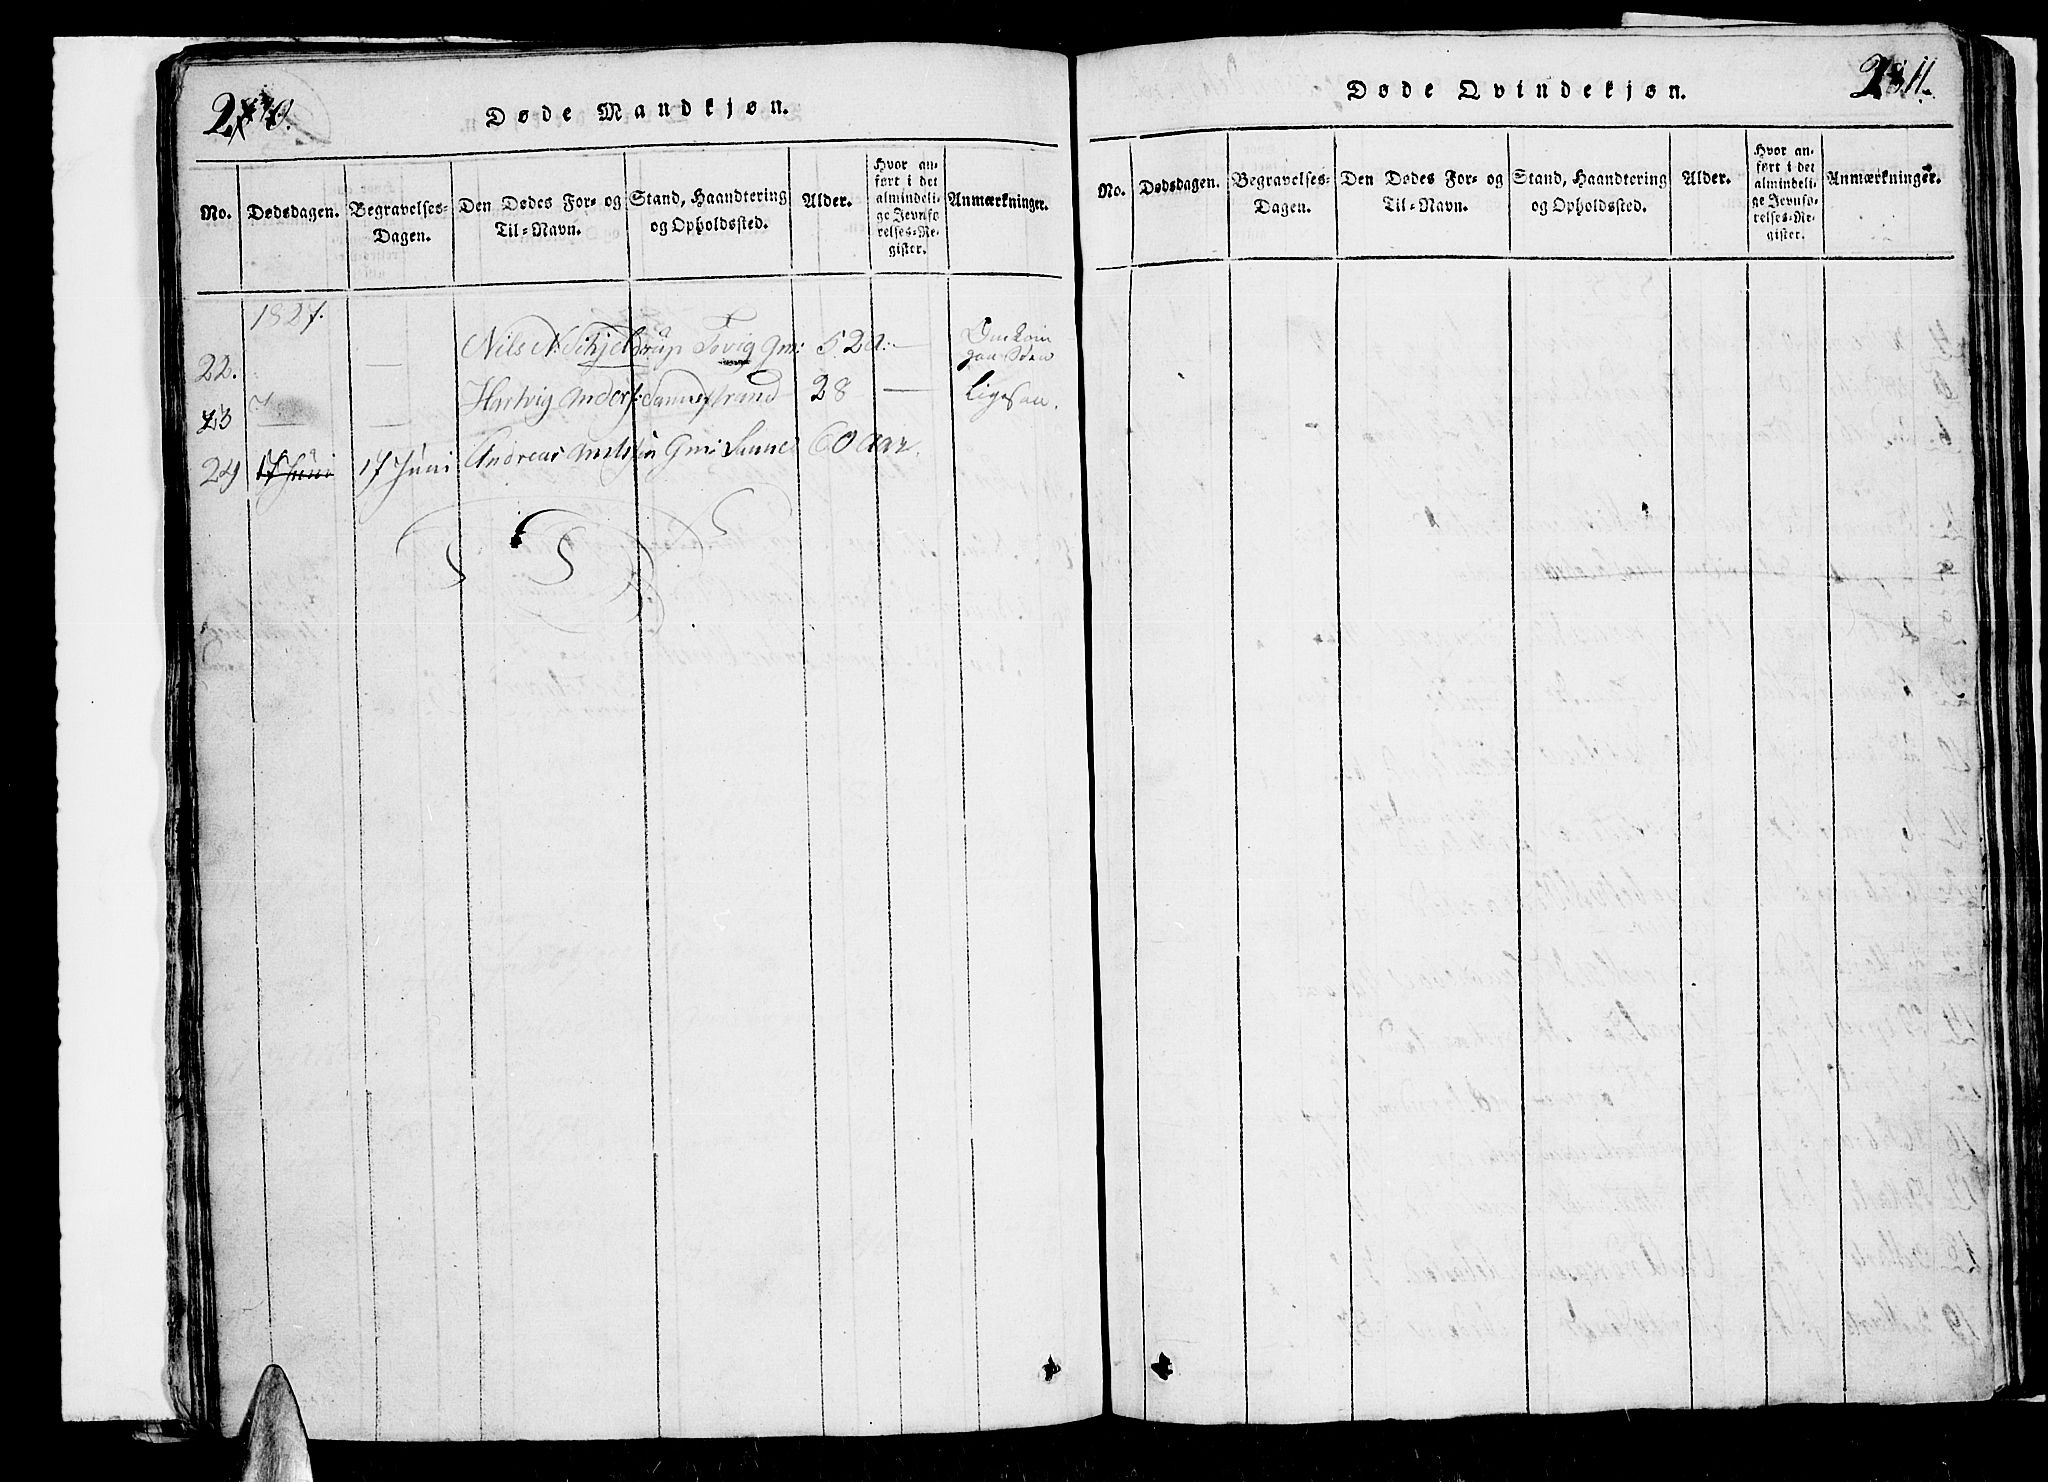 Døde Mandkjøn.
No. Dødsdagen. Begravelses-Dagen. Den Dødes For- og Til-Navn. Stand, Haandtering og Opholdssted. Alder. Hvor anført i det almindelige Jevnførelses-Register. Anmærkninger.
1827.
22. — Nils N. Schjeldrup Tøvig Gm: 52 a: — Omkom paa Søen
23 — — Hartvig Anders: Sannesstrand 28 — Ligesaa.
24 17 Juni 17 Juni Andreas Nils Gm: Sannes 60 aar.
Døde Qvindekjøn.
2811.
No. Dødsdagen. Begravelses-Dagen. Den Dødes For- og Til-Navn. Stand, Haandtering og Opholdssted. Alder. Hvor anført i det almindelige Jevnførelses-Register. Anmærkninger.